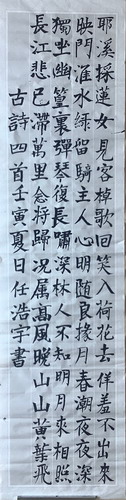 耶溪採蓮女見客棹歌回笑入荷花去佯羞不出來
映門淮水綠留騎主人心明随良掾月春潮夜夜深
獨坐幽篁裏彈琴復長嘯深林人不知明月來相照
長江悲已滯萬里念將歸况属髙風晚山山黄葉飛
古詩四首壬寅夏日任浩宇書